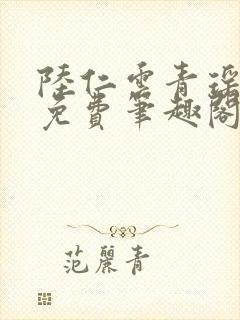 陸仁雲青瑶
免費筆趣閣
范麗青